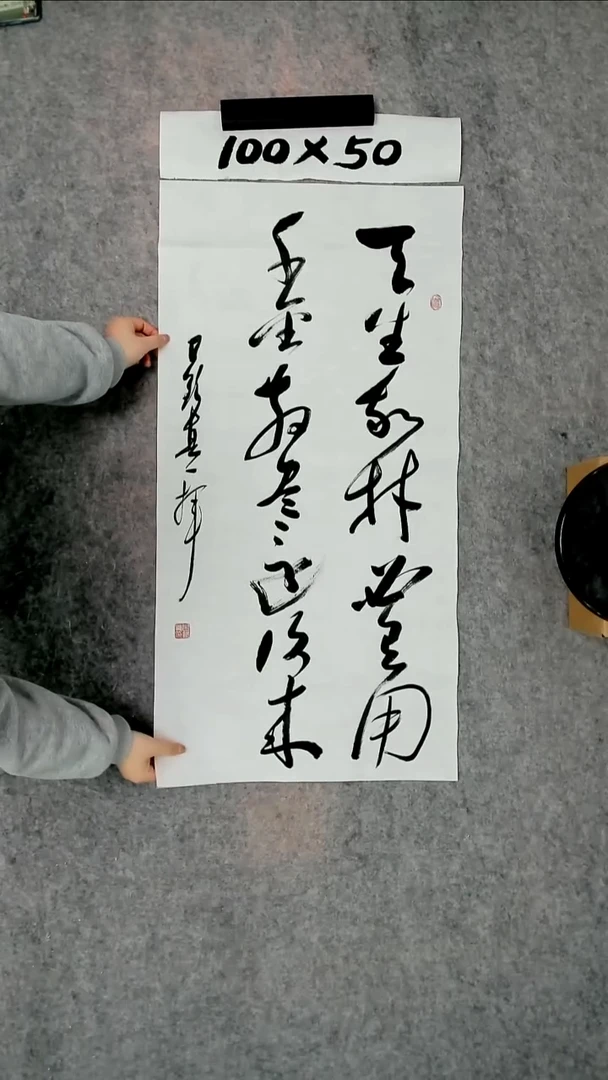 100×50
天生我材必有用
千金散尽还复来